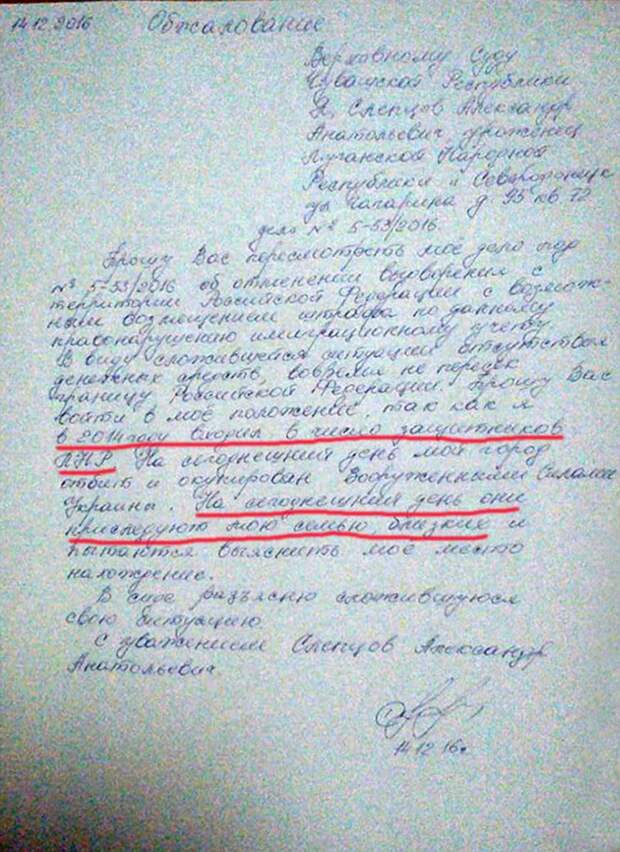 14.12.2016 Обжалование
Верховному Суду
Чувашской Республики
Я, Слепцов Александр
Анатольевич уроженец
Луганской Народной
Республики г Северодонецк
ул Гагарина д 95 кв 72
дело № 5-53/2016.
Прошу Вас пересмотреть моё дело под
№ 5-53/2016 об отменении выдворения с
территории Российской Федерации с возмож-
ным возмещением штрафа по данному
правонарушению имиграционному учёту
В виду сложившейся ситуации отсутствия
денежных средств, вовремя не пересек
границу Российской Федерации. Прошу Вас
войти в моё положение, так как я
в 2014 году входил в число защитников
ЛНР. На сегоднешний день мой город
отбит и окупирован Вооруженными Силами
Украины. На сегоднешний день они
приследуют мою семью, близких и
пытаются выяснить моё место
нахождение.
В суде разъясню сложившуюся
свою ситуацию
С уважением Слепцов Александр
Анатольевич
14.12.16г